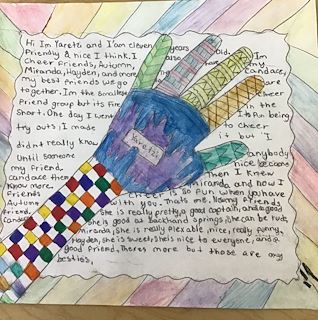 Hi Im Yaretzi and I am eleven years Old.
Friendly & nice I think. I also Im
Cheer Friends, Autumn, my
Miranda, Hayden, and more Candace,
my best friends we go are
together. Im the Smallest Cheer
Friend group but its Fine in the
Short. One day I went Its Fun being
try outs, I made to Cheer
didnt really know it but I
Until someone anybody
my friend, nice became
candace then Then I Knew
Know more. miranda and now I
Friends Cheer is so fun when you have
Autumn with you. Thats me. Now my Friends
Friend, She is really pretty, a good captain, and a good
Candace She is good at Backhand Springs, She can be rude,
miranda, She is really Flexable, nice, really funny,
Hayden, she is sweet, she's nice to everyone, and a
good Friend, Theres more but those are my
besties.
Yaretzi